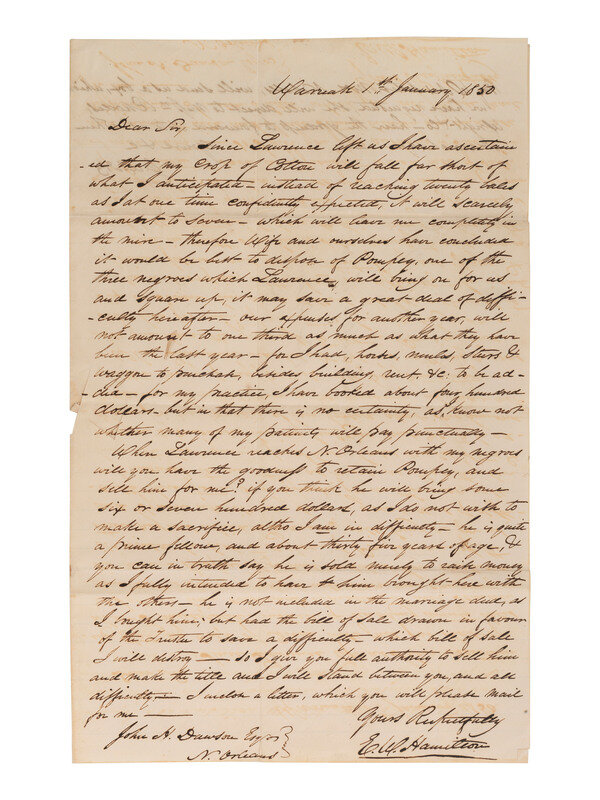 Warreak 1st. January 1850
Dear Sir,
Since Lawrence left us I have ascertain
-ed that my crop of Cotton will fall far short of
what I anticipated - instead of reaching twenty bales
as I at one time confidently expected, it will scarcely
amount to seven - which will leave me completely in
the mire - therefore Wife and ourselves have concluded
it would be best to dispose of Pompey, one of the
three negroes which Lawrence, will bring on for us
and square up, it may save a great deal of diffi-
-culty hereafter - our expenses for another year, will
not amount to one third as much as what they have
been the last year - for I had, horses, mules, steers &
waggon to purchase, besides building, rent. &c. to be ad-
-ded - for my practice, I have booked about four hundred
dollars - but in that there is no certainty, as, know not
whether many of my patients will pay punctually -
When Lawrence reaches N. Orleans with my negroes
will you have the goodness to retain Pompey, and
sell him for me? if you think he will bring some
six or seven hundred dollars, as I do not wish to
make a sacrifice, altho I am in difficulty - he is quite
a prime fellow, and about thirty five years of age, &
you can in truth say he is sold merely to raise money
as I fully intended to have him brought here with
the others - he is not included in the marriage deed, as
I bought him; but had the bill of sale drawn in favour
of the Trustee to save a difficulty - which bill of sale
I will destroy - so I give you full authority to sell him
and make the title and I will stand between you, and all
difficulty - I inclose a letter, which you will please mail
for me -
Yours Respectfully
E. W. Hamilton
John A. Dawson Esqr
N. Orleans